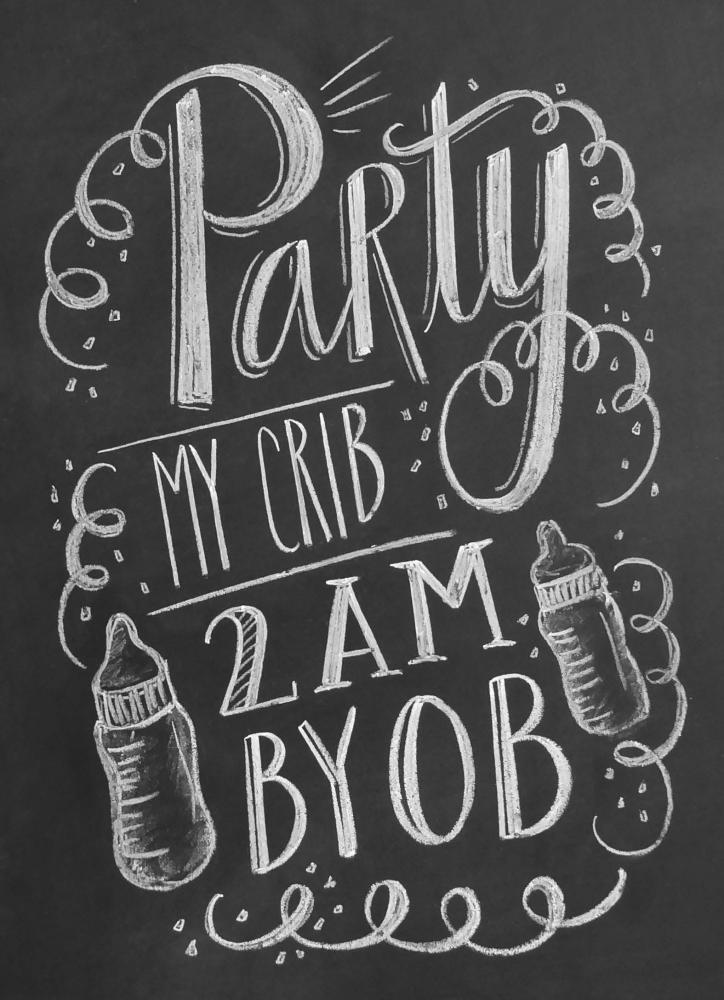 Party
MY CRIB
2 AM
BYOB